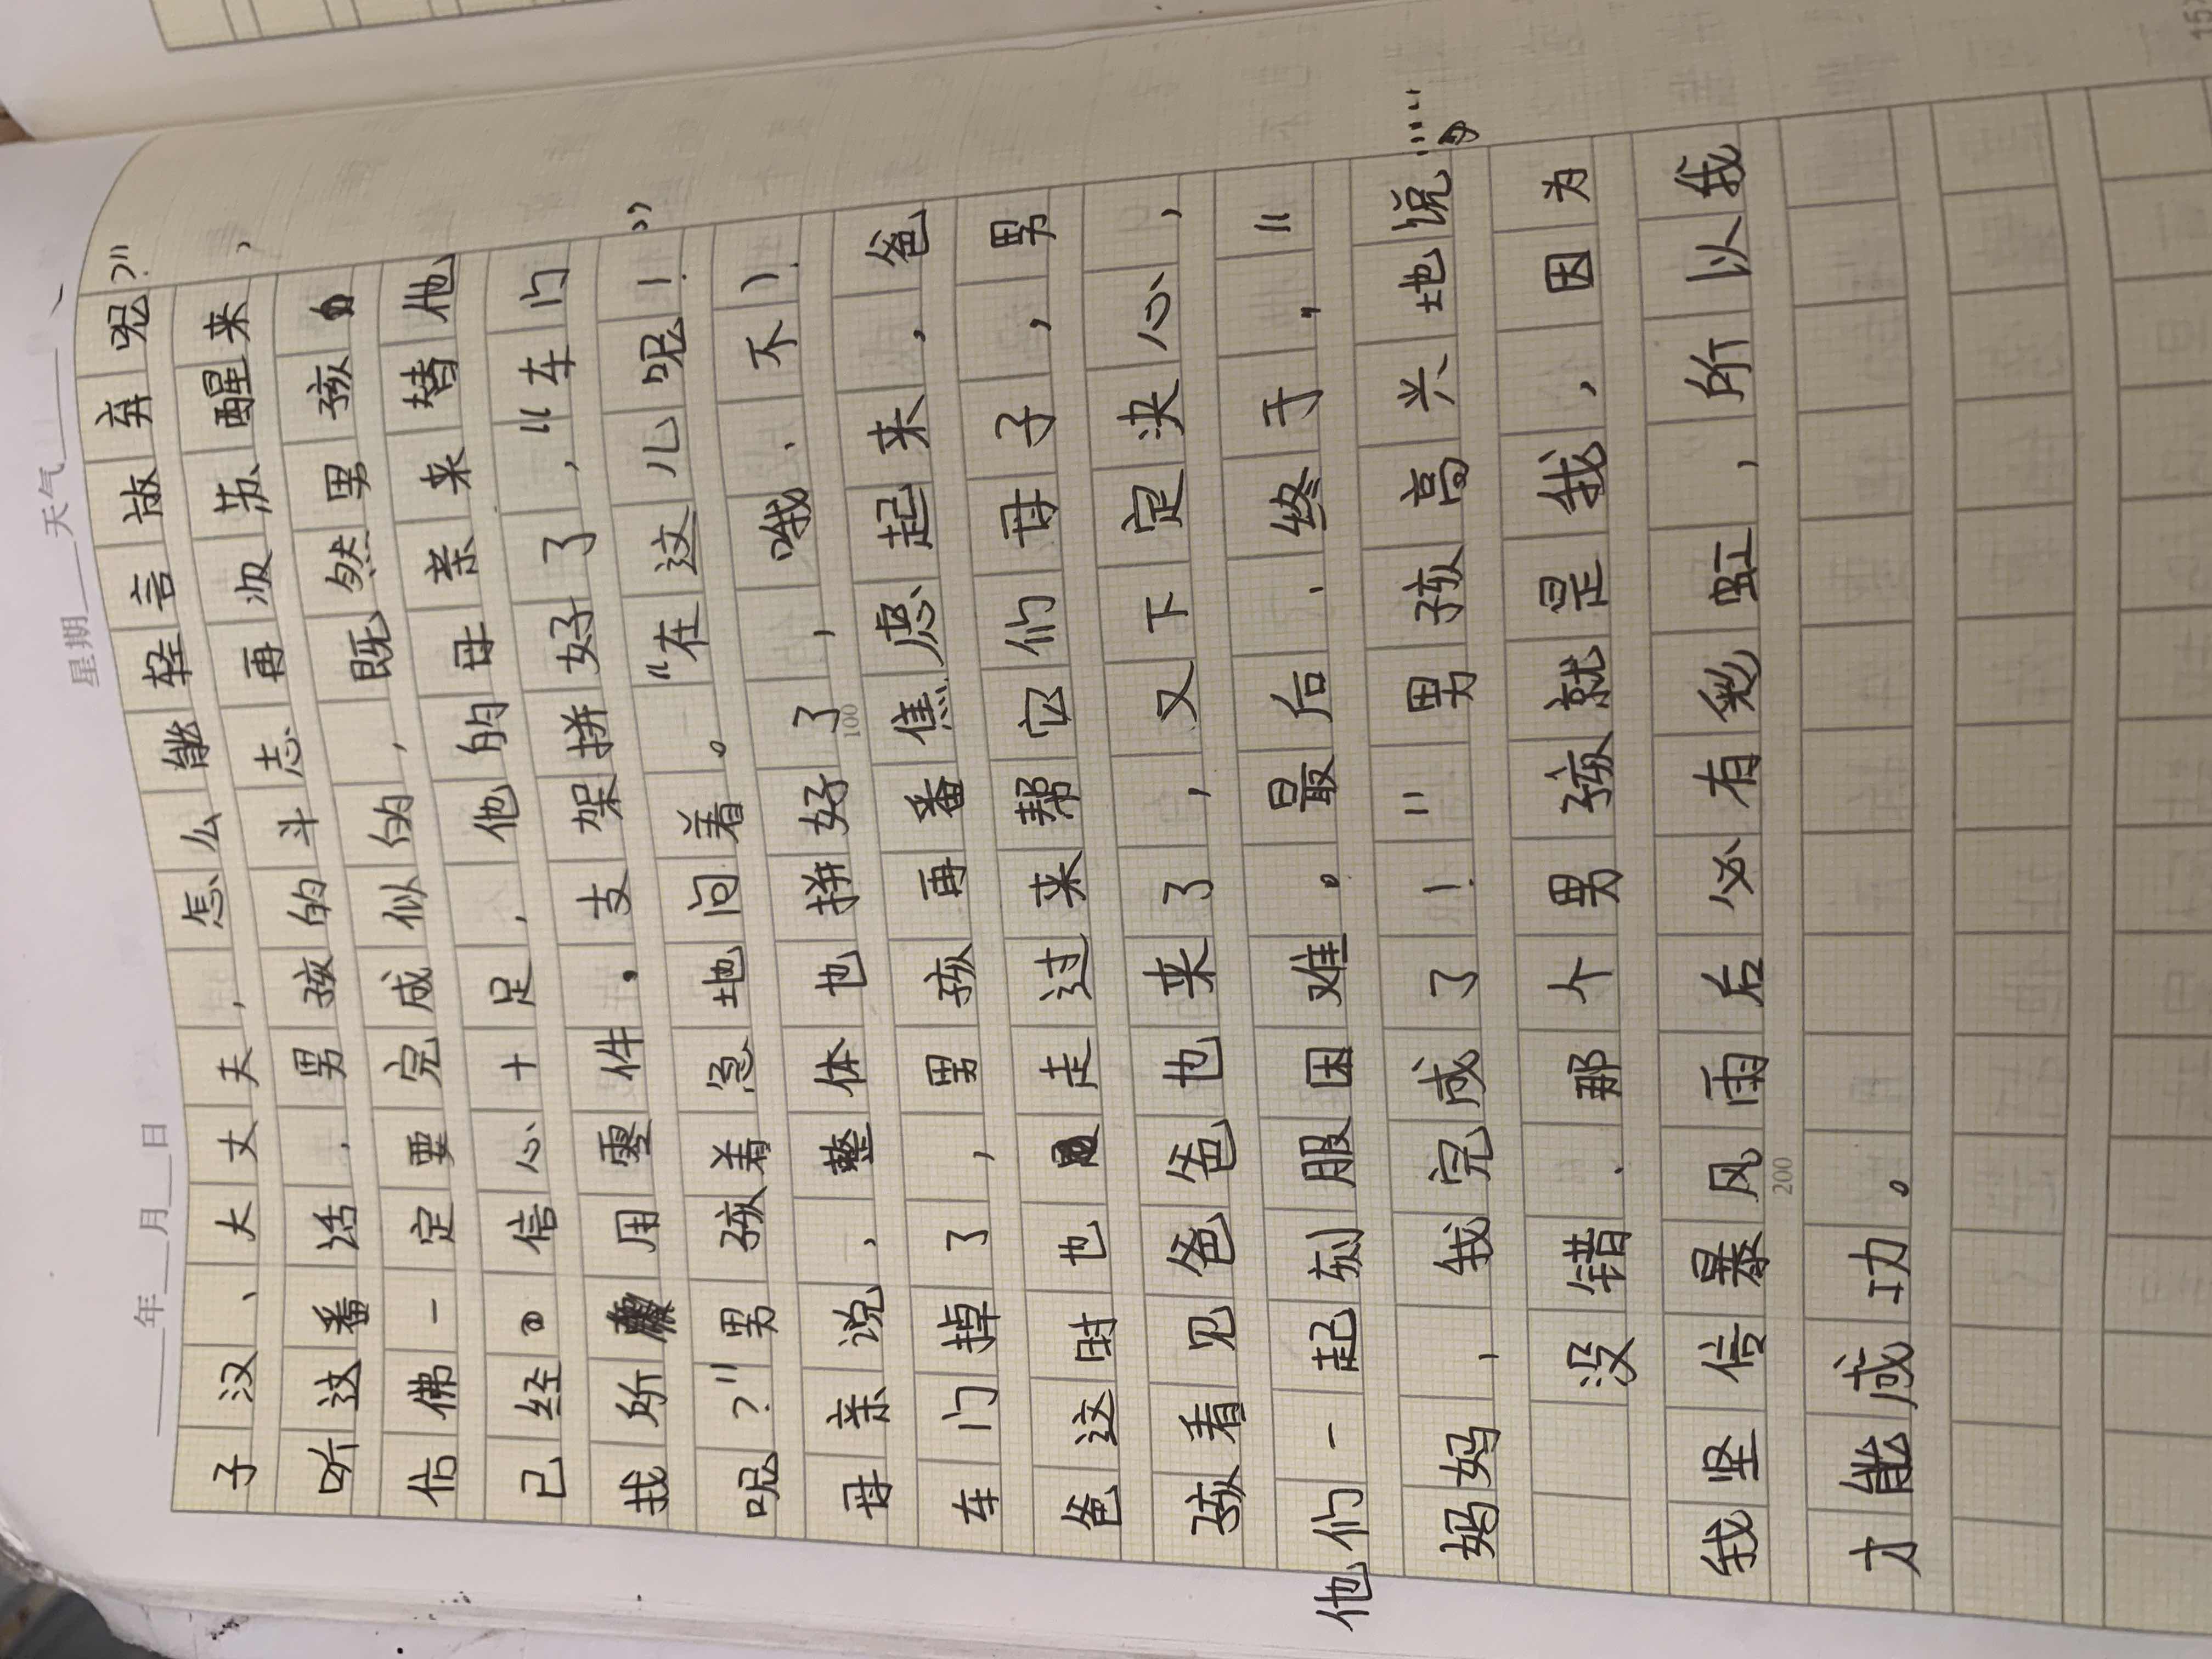 年 月 日 星期 天气
子汉、大丈夫，怎么能轻言放弃呢？”
听这番话，男孩的斗志再次苏醒来，
仿佛一定要完成似的，既然男孩
已经信心十足，他的母亲来替他
找所用零件，支架拼好了，“车门
呢？”男孩着急地问着。“在这儿呢！”
母亲说，整体也拼好了，哦，不！
车门掉了，男孩再番焦虑起来，爸
爸这时也走过来帮它们母子，男
孩看见爸爸也来了，又下定决心，
他们一起刻服困难。最后，终于，“
妈妈，我完成了！”男孩高兴地说……
100
没错，那个男孩就是我，因为
我坚信暴风雨后必有彩虹，所以我
200
才能成功。